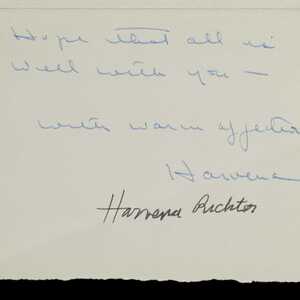 Hope that all is
well with you —
with warm affection
Harvena
Harvena Richter